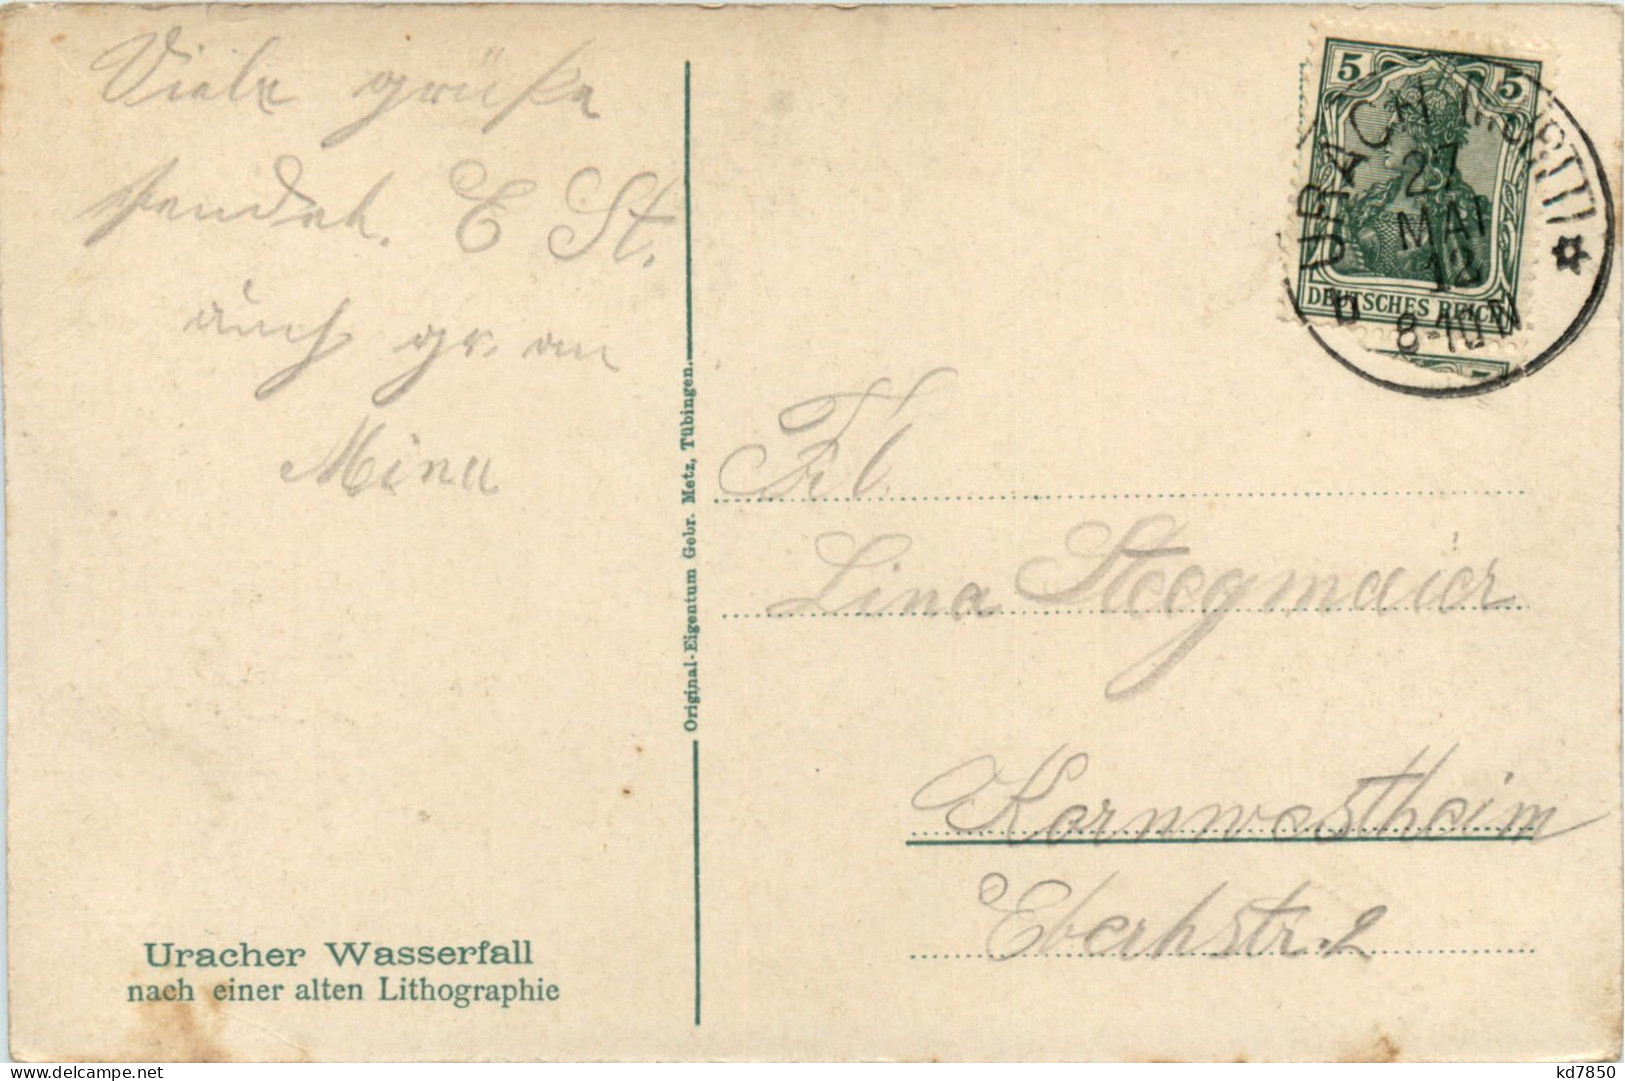 Viele grüße
sendet. E St.
auch gr. an
Mina
Original-Eigentum Gebr. Metz, Tübingen.
5 5
DEUTSCHES REICH
URACH (WÜRTT)
27
MAI
12
8-10 N
b
Frl.
Lina Steegmaier
Kornwestheim
Eberhstr. 2
Uracher Wasserfall
nach einer alten Lithographie
www.delcampe.net
kd7850